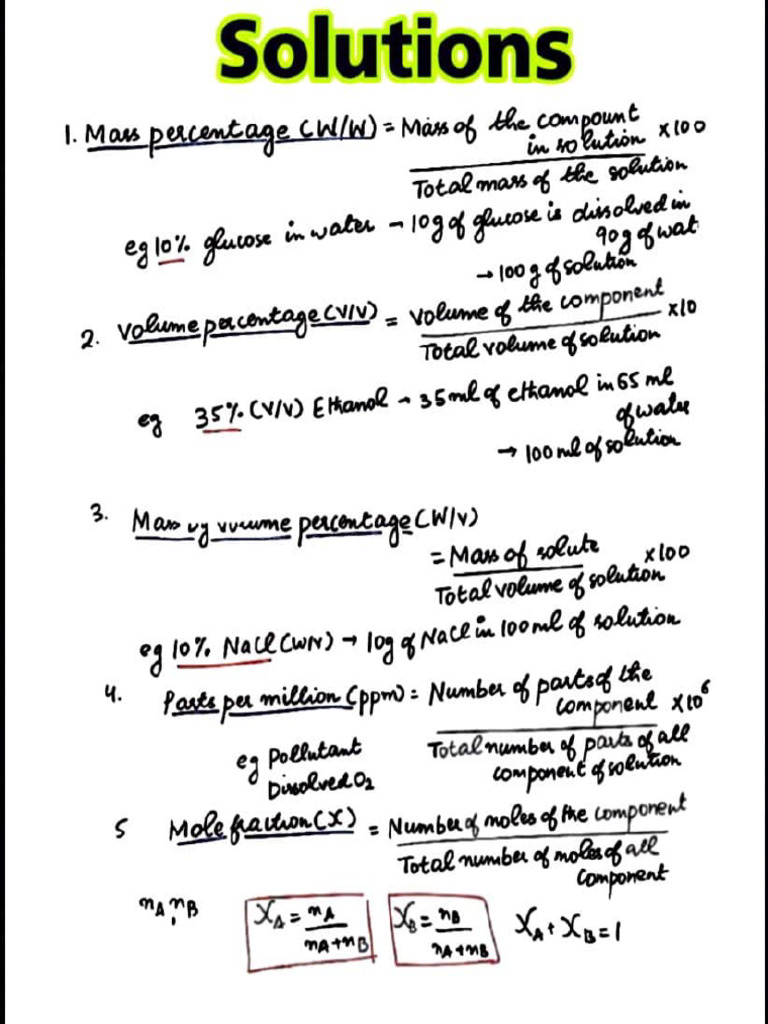 Solutions
1. Mass percentage (W/W) = Mass of the compount
in solution ×100
Total mass of the solution
eg 10% glucose in water → 10g of glucose is dissolved in
90g of wat
→ 100 g of solution
2. Volume percentage (V/V) = Volume of the component ×10
Total volume of solution
eg 35% (V/V) Ethanol → 35ml of ethanol in 65 ml
of water
→ 100 ml of solution
3. Mass by volume percentage (W/V)
= Mass of solute ×100
Total volume of solution
eg 10% NaCl (W/V) → 10g of NaCl in 100 ml of solution
4. Parts per million (ppm) = Number of parts of the
component ×10⁶
Total number of parts of all
component of solution
eg Pollutant
Dissolved O₂
5 Mole fraction (X) = Number of moles of the component
Total number of moles of all
component
nA, nB
XA = nA / nA+nB XB = nB / nA+nB XA + XB = 1